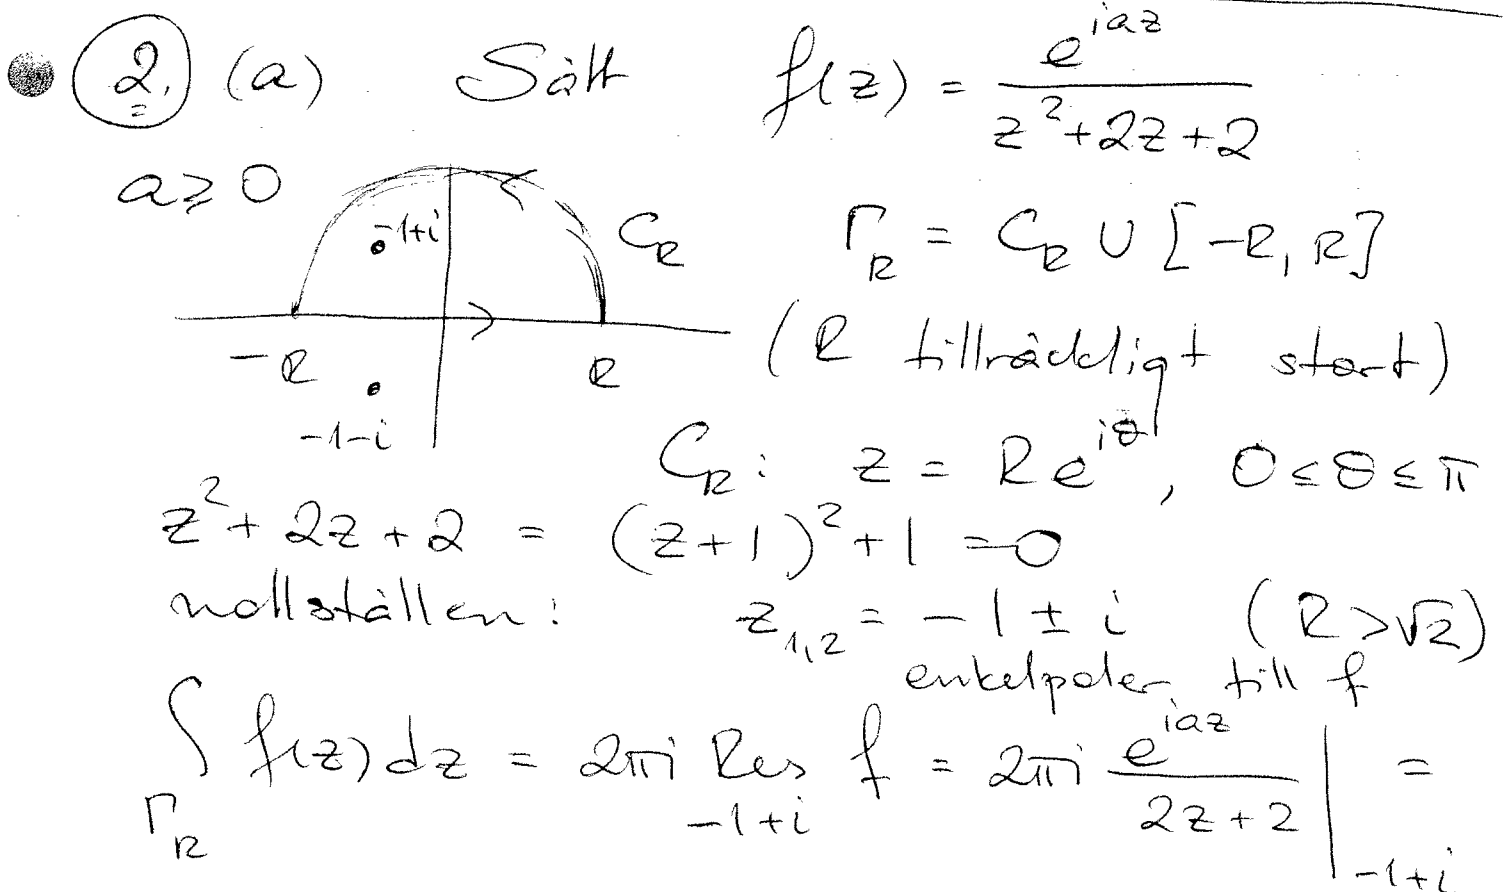 2. (a) Sätt f(z) = e^{iaz} / (z^2+2z+2)
a ≥ 0
-1+i C_R Γ_R = C_R ∪ [-R, R]
-R R (R tillräckligt stort)
-1-i C_R: z = Re^{iθ}, 0 ≤ θ ≤ π
z^2+2z+2 = (z+1)^2+1 = 0
nollställen: z_{1,2} = -1 ± i (R > √2)
enkelpoler till f
∫_{Γ_R} f(z)dz = 2πi Res_{-1+i} f = 2πi e^{iaz} / (2z+2) |_{-1+i} =